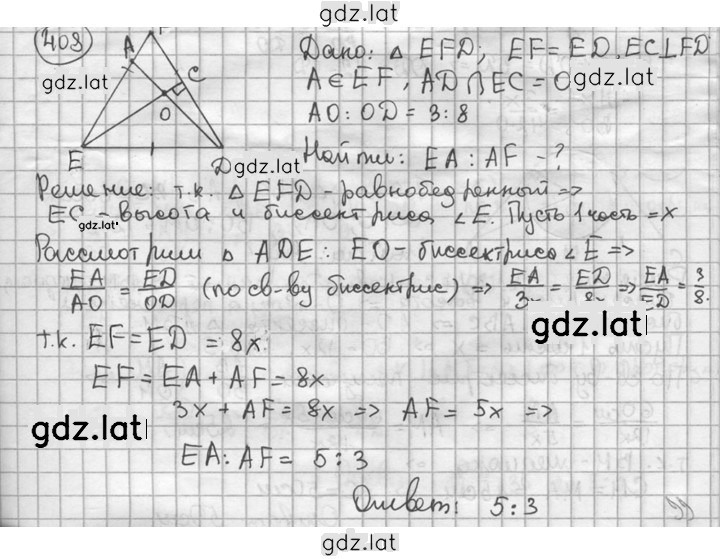 gdz.lat
403
Дано: △ EFD; EF = ED, EC⊥FD
gdz.lat
gdz.lat
A ∈ EF, AD ∩ EC = O
AO : OD = 3 : 8
A
F
C
O
E
D
gdz.lat
Найти: EA : AF - ?
Решение: т.к. △ EFD - равнобедренный =>
EC - высота и биссектриса ∠E. Пусть 1 часть = x
gdz.lat
Рассмотрим △ ADE: EO - биссектриса ∠E =>
EA/AO = ED/OD (по св-ву биссектрис) => EA/3x = ED/8x => EA/ED = 3/8.
gdz.lat
т.к. EF = ED = 8x:
EF = EA + AF = 8x
3x + AF = 8x => AF = 5x =>
gdz.lat
EA : AF = 5 : 3
Ответ: 5 : 3
gdz.lat